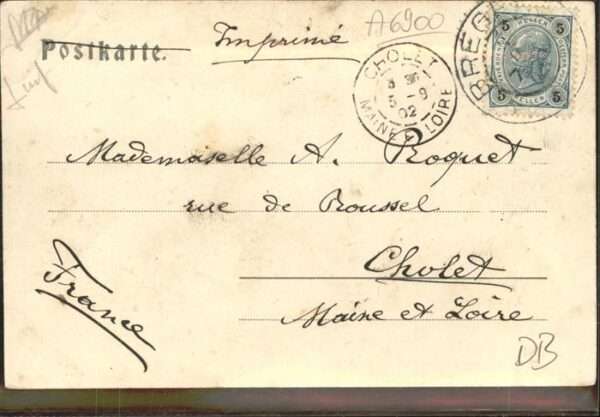 A6900
Postkarte.
Imprimé
CHOLET
5 -9
02
MAINE & LOIRE
BREG
5 HELLER 5
5 HELLER 5
Mademoiselle A. Roquet
rue de Roussel
Cholet
Maine et Loire
France
DB